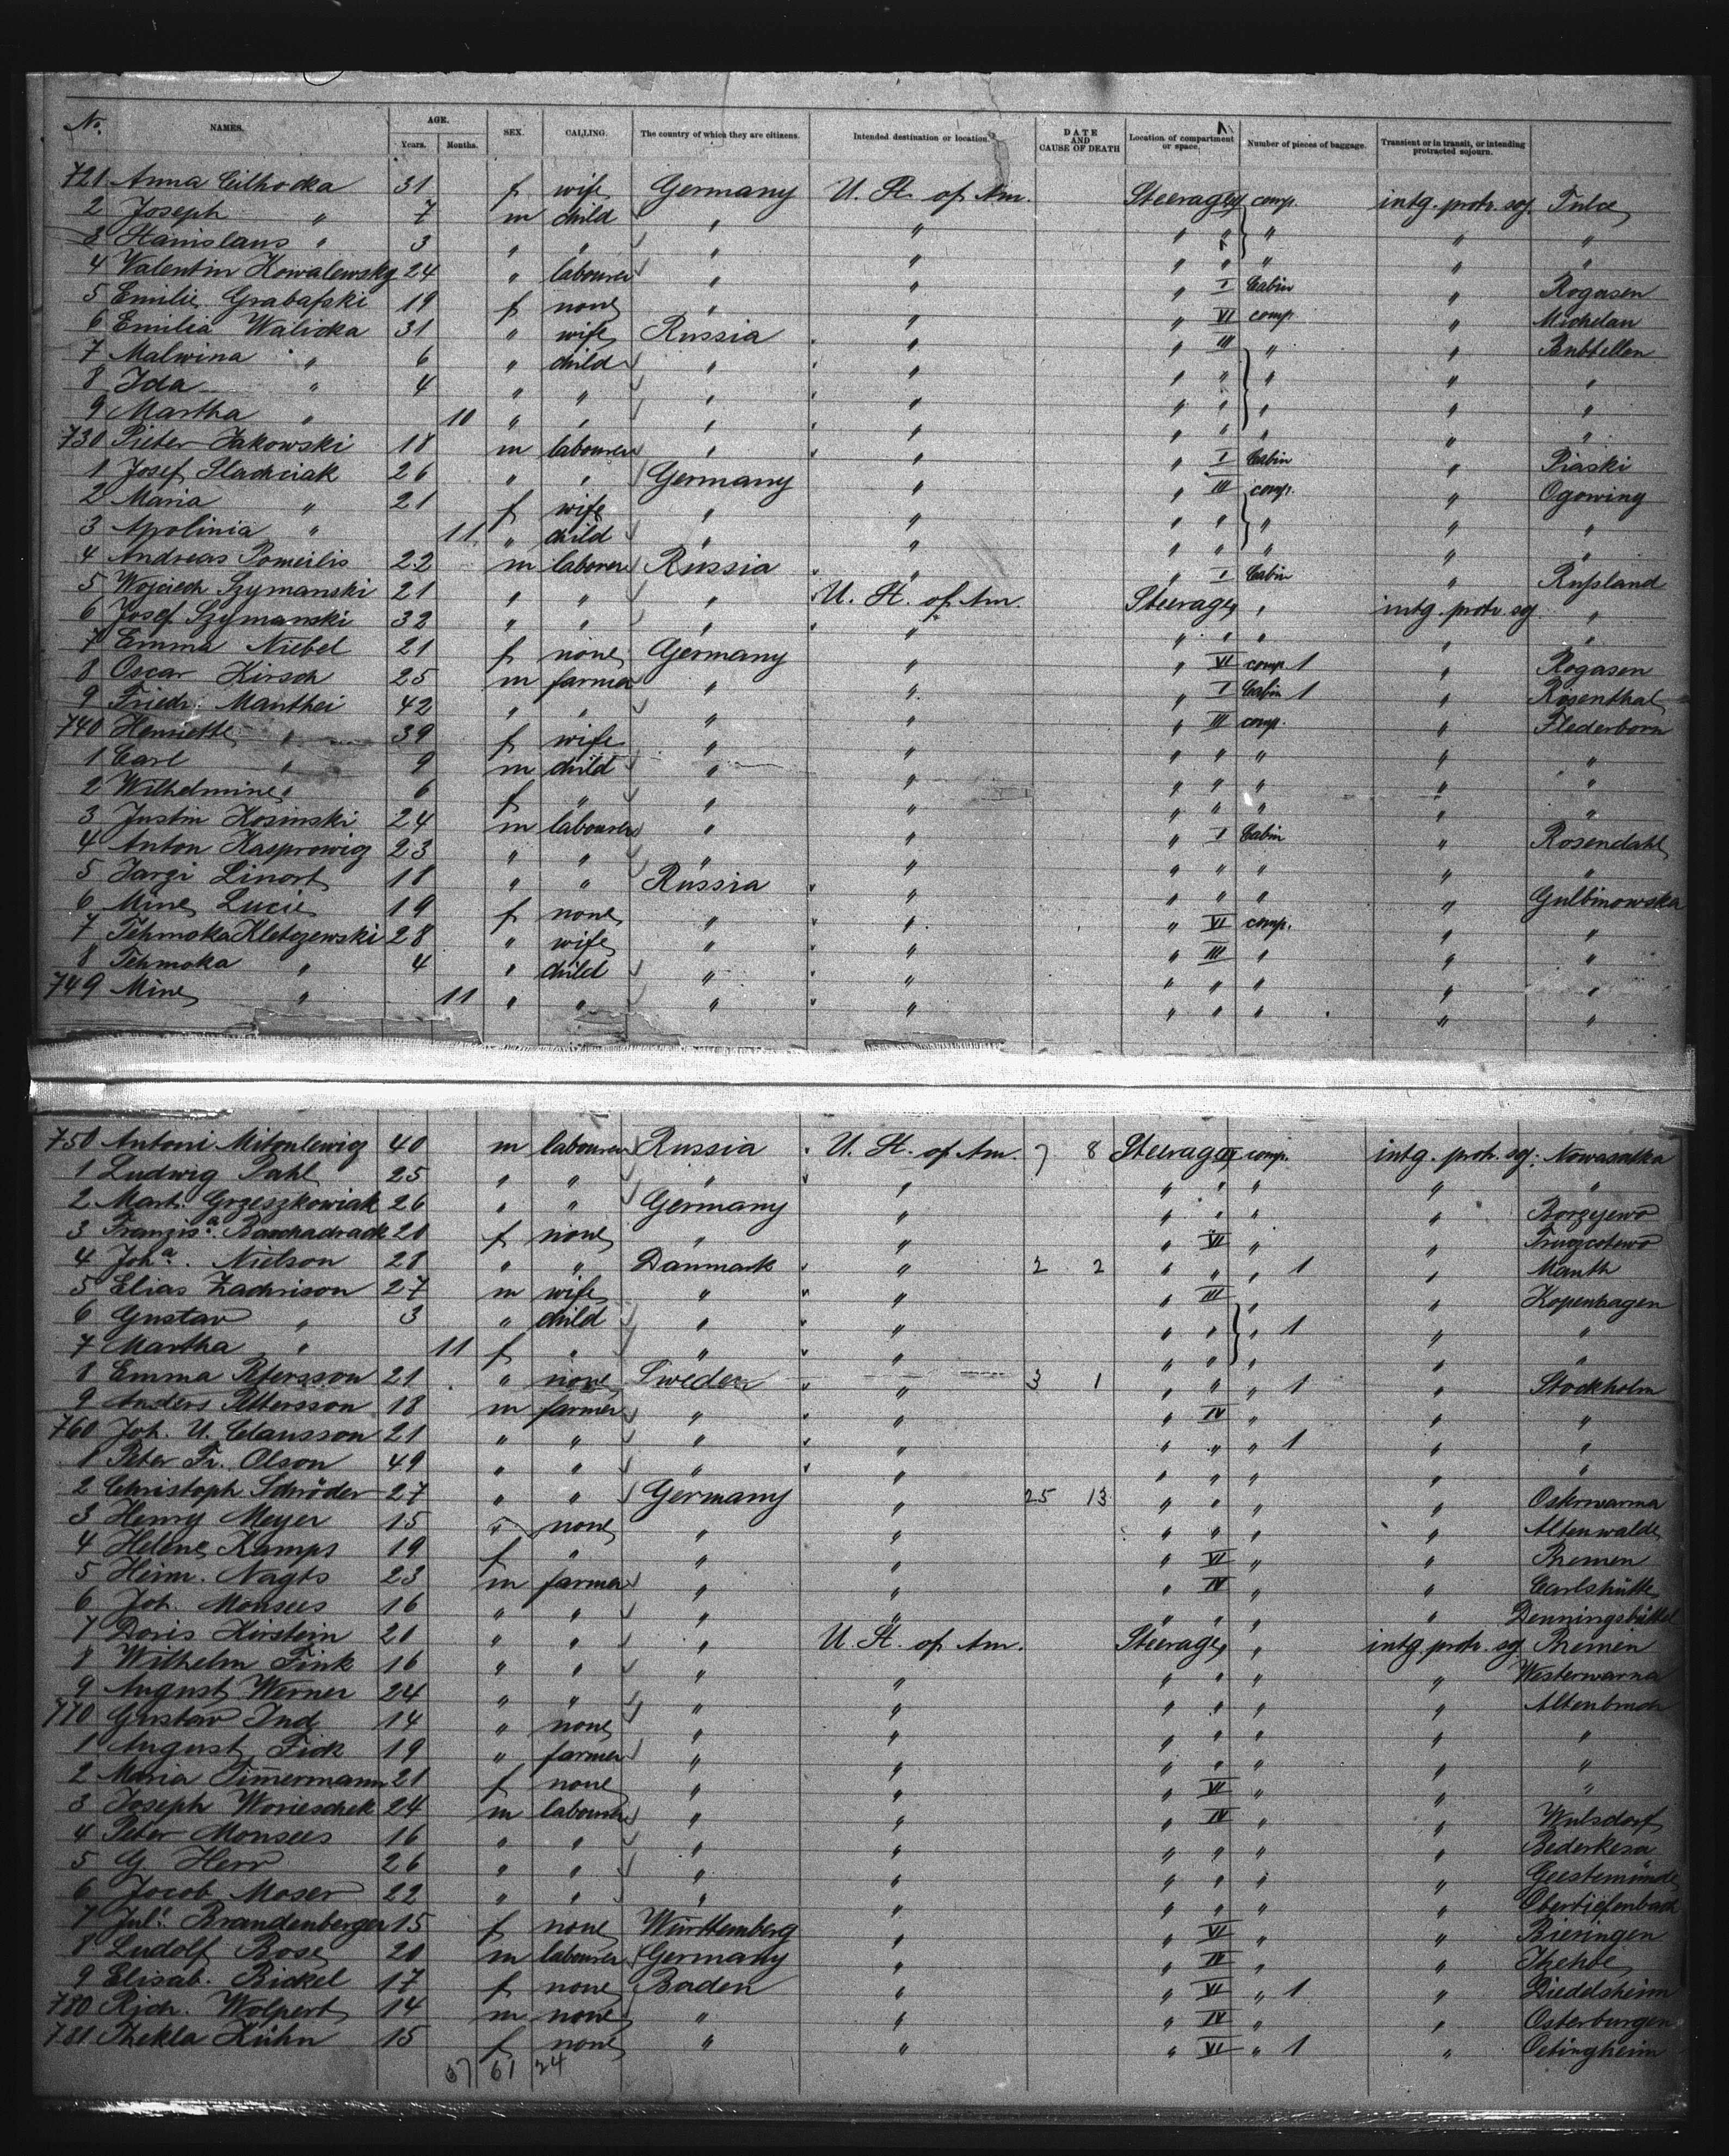 No. NAMES. AGE. Years. Months. SEX. CALLING. The country of which they are citizens. Intended destination or location. DATE AND CAUSE OF DEATH Location of compartment or space. Number of pieces of baggage. Transient or in transit, or intending protracted sojourn.
721 Anna Cilhocka 31 f wife Germany U. St. of Am. Steerage comp. intg. protr. soj.
2 Joseph " 7 m child " " " " " " "
3 Stanislaus " 3 " " " " " " " " "
4 Valentin Kowalewsky 24 " labourer " " " I Cabin " Rogasen
5 Emilie Grabafski 19 f none " " " VI comp. " Michelau
6 Emilia Walicka 31 " wife Russia " " III " "
7 Malwina " 6 " child " " " " " " "
8 Ida " 4 " " " " " " " " "
9 Martha " 10 " " " " " " " " "
730 Pieter Jakowski 18 m labourer " " " I Cabin " Piaski
1 Josef Sladiciak 26 " " Germany " " III comp. " Ogowing
2 Maria " 21 f wife " " " " " " "
3 Apolinia " 11 " child " " " " " " "
4 Andreas Pomeilis 22 m laborer Russia " " I Cabin " Rußland
5 Wojciech Szymanski 21 " " " U. St. of Am. Steerage " intg. protr. soj. "
6 Josef Szymanski 32 " " " " " " " " "
7 Emma Niebel 21 f none Germany " " VI comp. 1 " Rogasen
8 Oscar Kirsch 25 m farmer " " " I Cabin 1 " Rosenthal
9 Friedr. Manthei 42 " " " " " III comp. " Flederborn
740 Henriette " 39 f wife " " " " " " "
1 Carl " 9 m child " " " " " " "
2 Wilhelmine " 6 f " " " " " " " "
3 Justin Kosinski 24 m labourer " " " I Cabin " Rosendahl
4 Anton Kasprowig 23 " " " " " " " " "
5 Jargi Linort 18 " " Russia " " " " " Gulbinowska
6 Mine Lucie 19 f none " " " VI comp. " "
7 Tehmoka Kletczewski 28 " wife " " " III " " "
8 Tehmoka " 4 " child " " " " " " "
749 Mine " 11 " " " " " " " " "
750 Antoni Mitonlewig 40 m labourer Russia U. St. of Am. 7 8 Steerage comp. intg. protr. soj. Nowasatka
1 Ludwig Pahl 25 " " " " " " " " "
2 Mart. Grzeszkowiak 26 " " Germany " " " " " Borzyewo
3 Franzis.a 20 f none " " " VI " "
4 Joh.a Nielson 28 " " Danmark " 2 2 " " " 1 " Manth
5 Elias Zachrison 27 m wife " " " III " " Kopenhagen
6 Gustav " 3 " child " " " " " 1 " "
7 Martha " 11 f " " " " " " " "
8 Emma Petersson 21 " none Sweden " 3 1 " " " 1 " Stockholm
9 Anders Pettersson 18 m farmer " " " IV " " "
760 Joh. U. Clausson 21 " " " " " " " 1 " "
1 Peter Fr. Olson 49 " " " " " " " " "
2 Christoph Schröder 27 " " Germany " 25 13 " " " " Osterwarma
3 Henry Meyer 15 " none " " " " " " Altenwalde
4 Helene Kamps 19 f " " " " VI " " Bremen
5 Heinr. Nagts 23 m farmer " " " IV " " Carlshütte
6 Joh. Monsees 16 " " " " " " " " Denningsbüttel
7 Doris Hirstein 20 " " " U. St. of Am. Steerage " intg. protr. soj. Bremen
8 Wilhelm Fink 16 " " " " " " " " Westerwarna
9 August Werner 24 " " " " " " " " Altenbruch
770 Gustav Ind 14 " none " " " " " " "
1 August Fick 19 " farmer " " " " " " "
2 Maria Timermann 21 f none " " " VI " " "
3 Joseph Worieschek 24 m labourer " " " IV " " Wulsdorf
4 Peter Monsees 16 " " " " " " " " Bederkesa
5 G. Herr 26 " " " " " " " " Geestemünde
6 Jacob Moser 22 " " " " " " " " Obertiefenbach
7 Jul. Brandenberger 15 f none Württemberg " " VI " " Bieringen
8 Ludolf Bose 20 m labourer Germany " " IV " "
9 Elisab. Bickel 17 f none Baden " " VI " 1 " Diedelsheim
780 Rich. Wolpert 14 m none " " " IV " " Osterburgen
781 Thekla Kühn 15 f none " " " VI " 1 " Oetingheim
37 61 24